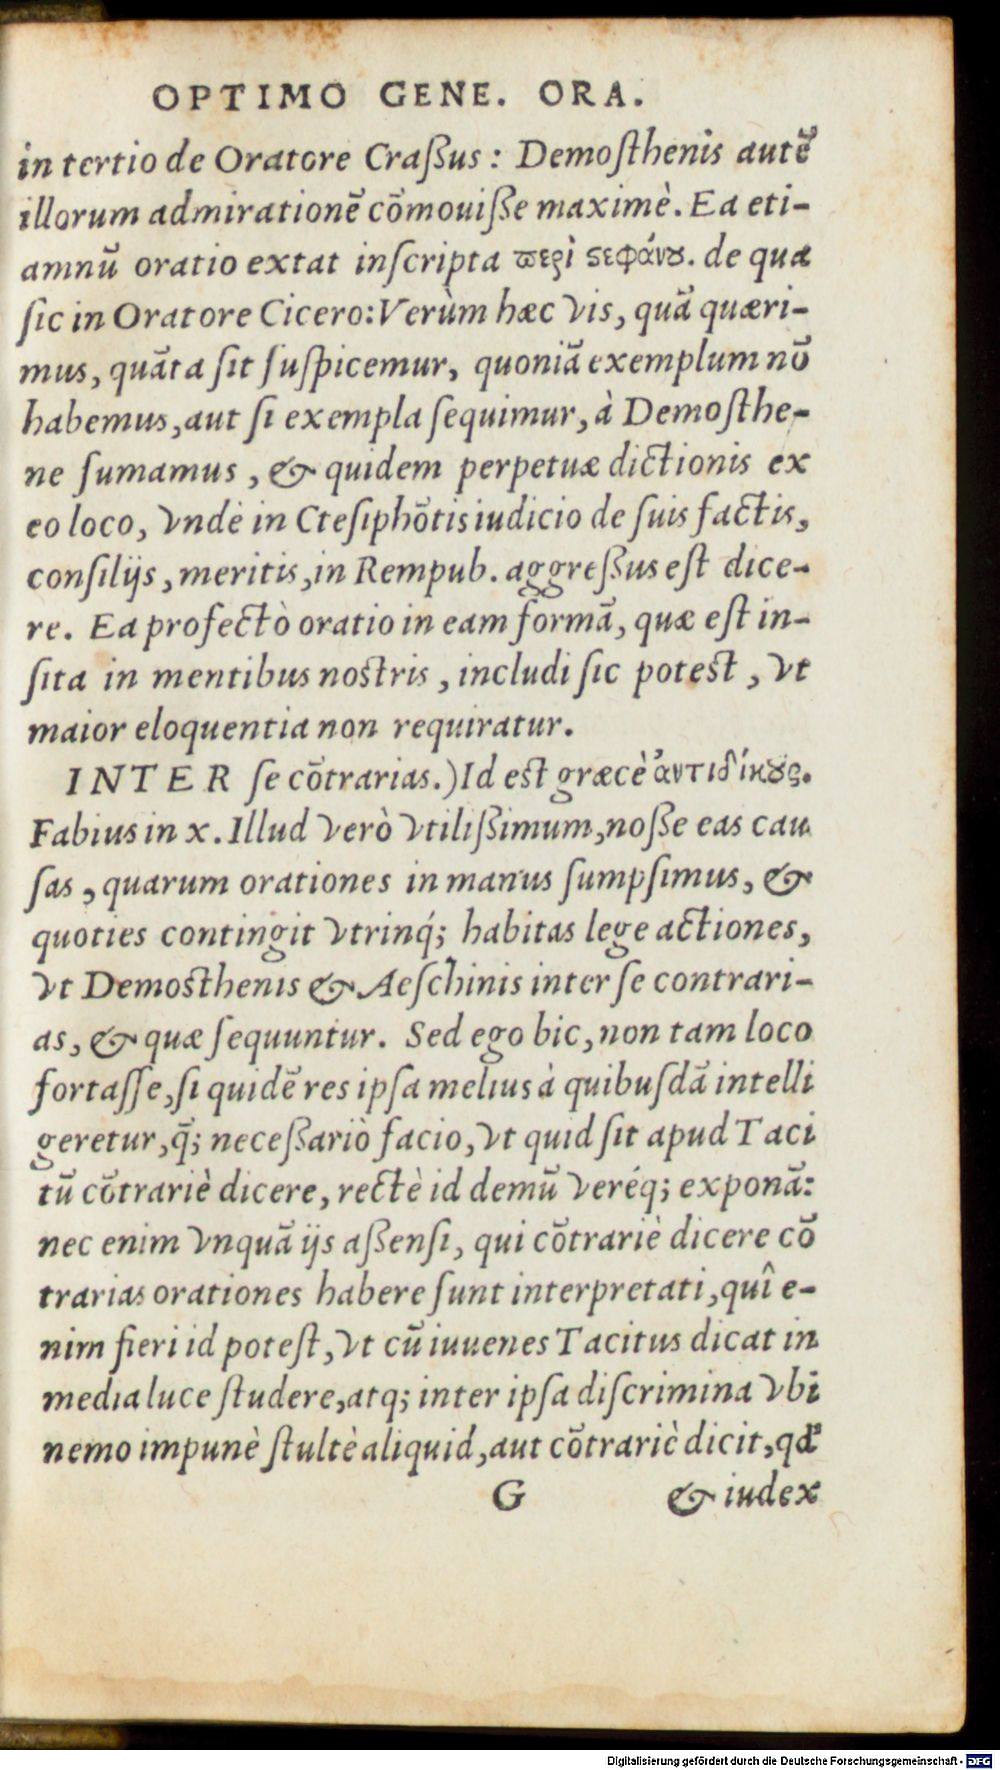 OPTIMO GENE. ORA.
in tertio de Oratore Craßus: Demoſthenis autē
illorum admirationē cōmouiſſe maximè. Ea eti-
amnū oratio extat inſcripta ϖερὶ ϛεφάνȣ. de qua
ſic in Oratore Cicero: Verùm hæc vis, quā quæri-
mus, quāta ſit ſuſpicemur, quoniā exemplum nō
habemus, aut ſi exempla ſequimur, à Demoſthe-
ne ſumamus, & quidem perpetuæ dictionis ex
eo loco, vnde in Cteſiphōtis iudicio de ſuis factis,
conſilijs, meritis, in Rempub. aggreßus eſt dice-
re. Ea profectò oratio in eam formā, quæ eſt in-
ſita in mentibus noſtris, includi ſic poteſt, vt
maior eloquentia non requiratur.
INTER ſe cōtrarias.) Id eſt græcè ἀντιδίκȣς.
Fabius in x. Illud verò vtilißimum, noſſe eas cau
ſas, quarum orationes in manus ſumpſimus, &
quoties contingit vtrinq́; habitas lege actiones,
vt Demoſthenis & Aeſchinis inter ſe contrari-
as, & quæ ſequuntur. Sed ego hic, non tam loco
fortaſſe, ſi quidē res ipſa melius à quibuſdā intelli
geretur, q̄; neceßariò facio, vt quid ſit apud Taci
tū cōtrariè dicere, rectè id demū veréq; exponā:
nec enim vnquā ijs aßenſi, qui cōtrariè dicere cō
trarias orationes habere ſunt interpretati, quî e-
nim fieri id poteſt, vt cū iuuenes Tacitus dicat in
media luce ſtudere, atq; inter ipſa diſcrimina vbi
nemo impunè ſtultè aliquid, aut cōtrariè dicit, qđ
G & iudex
Digitalisierung gefördert durch die Deutsche Forschungsgemeinschaft - DFG